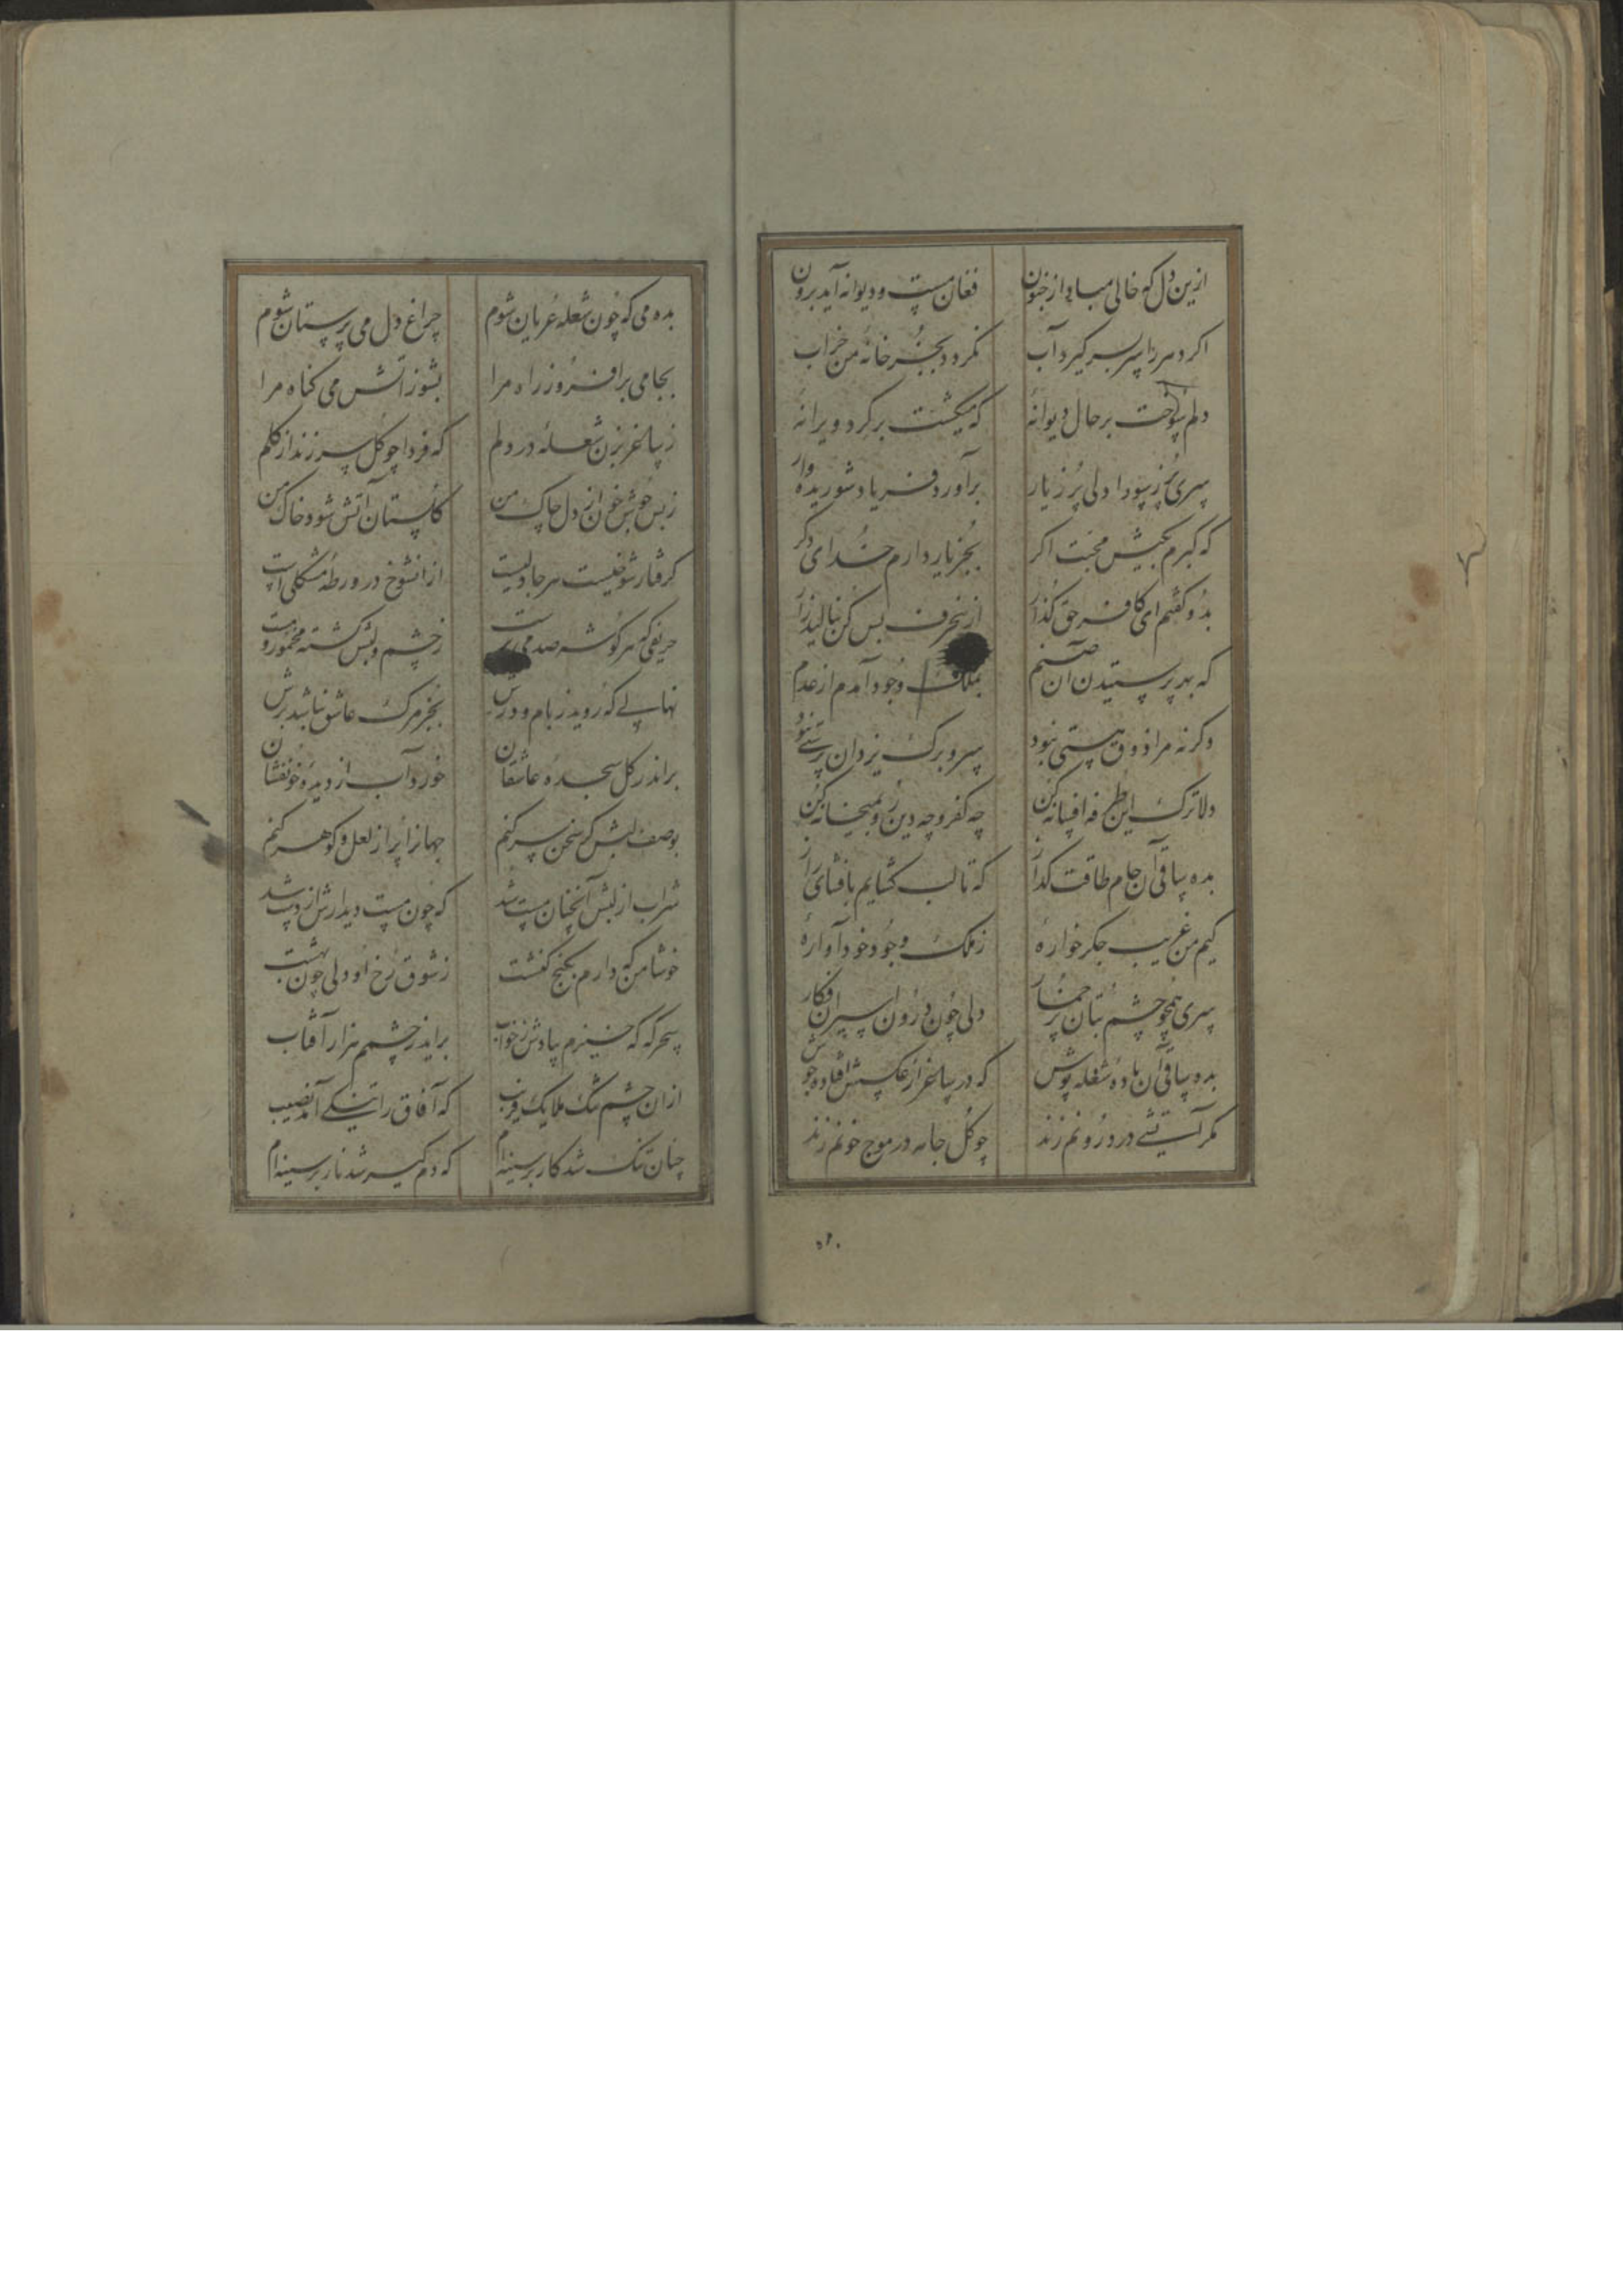 ازین دل که خالی مباد از جنون
فغان مست و دیوانه آید برون
اکر دهر را سربسر کیرد آب
نکردد بجز خانهٔ من خراب
دلم سوخت بر حال دیوانهٔ
که میکشت بر کرد ویرانهٔ
سری پر ز سودا دلی پر ز یار
برآورد فریاد شوریده وار
که کبرم بکیش محبت اکر
بجز یار دارم خدای دکر
بدو کفتم ای کافر حق کذار
ازینحرف بس کن بنالید زار
که بهر پرستیدن آن صنم
بملک وجود آمدم از عدم
وکرنه مرا ذوق هستی نبود
سر و برک یزدان پرستی نبود
دلا ترک این طرفه افسانه کن
چه کفر و چه دین رو بمیخانه کن
بده ساقی آن جام طاقت کداز
که تا لب کشایم بافشای راز
کیم من غریب جکر خوارهٔ
ز ملک وجود خود آوارهٔ
سری همچو چشم بتان پر خمار
دلی چون درون اسیران فکار
بده ساقی آن بادهٔ شعله پوش
که در ساغر از عکسش افتاده جوش
مکر آتشی در درونم زند
چو کل جامه در موج خونم زند
بده می که چون شعله عریان شوم
چراغ دل می پرستان شوم
بجامی برافروز راه مرا
بشو زآتش می کناه مرا
ز ساغر بزن شعلهٔ در دلم
که فردا چو کل سر زند از کلم
ز بس جوش خون از دل چاک من
کلستان آتش شود خاک من
کرفتار شوخیست هر جا دلیست
از آنشوخ در ورطهٔ مشکلی است
حریفی که هر کوشه صد می پرست
ز چشم و لبش کشته مخمور و مست
نهالی که روید ز بام و درش
بجز مرک عاشق نباشد برش
براند ز کل سجدهٔ عاشقان
خورد آب از دیدهٔ خونفشان
بوصف لبش کر سخن سر کنم
جهانرا پر از لعل و کوهر کنم
شراب از لبش آنچنان مست شد
که چون مست دیدارش از دست شد
خوشا من که دارم بکنج کنشت
ز شوق رخ او دلی چون بهشت
سحرکه که خیزم بیادش ز خواب
براید ز چشمم هزار آفتاب
ازان چشم تنک ملایک فریب
که آفاق را تنکی آمد نصیب
چنان تنک شد کار بر سینه‌ام
که دم کیر شد نار بر سینه‌ام